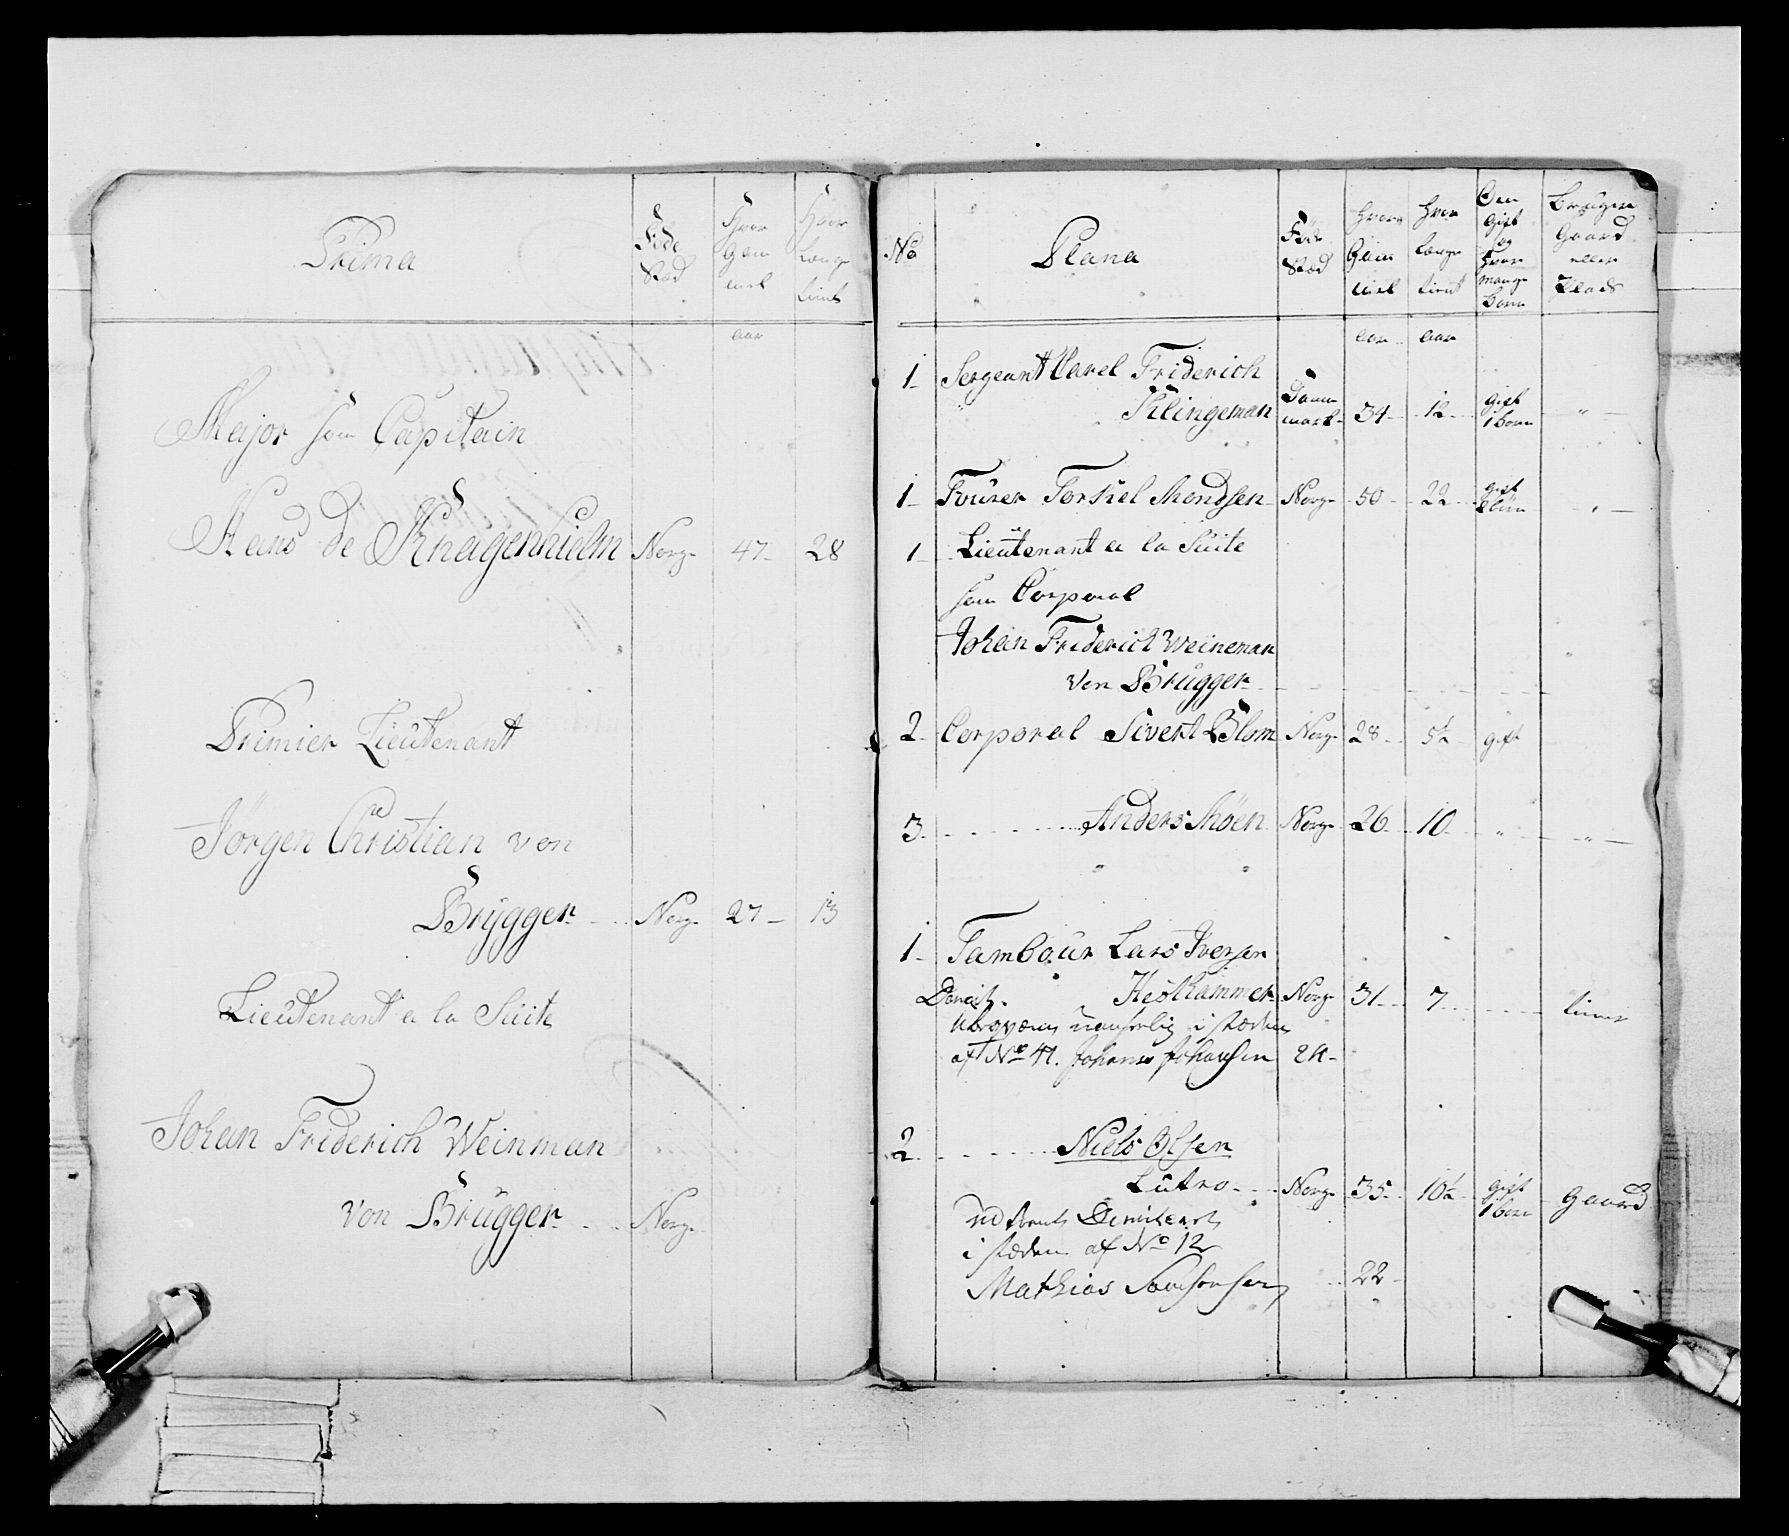 Prima
Føde
Stæd
Hvor
Gam
mel
Hvor
Længe
tient
aar
Major som Capitain
Hans de Knagenhielm Norge 47 - 28
Premier Lieutenant
Jörgen Christian von
Brygger Norge 27 - 13
Lieutenant a la Suite
Johan Friderich Weinman
von Brügger Norge
No
Plana
Føde
Stæd
Hvor
Gam
mel
Hvor
længe
tient
Om
Gift
og
hvor
mange
Born
Bruger
Gaard
eller
Plads
aar - aar
1 Sergeant Carel Friderich
Klingeman Danmark 34 - 12 gift 1 born "
1 Fourer Torkel Mondsen Norge 50 22 gift "
1 Lieutenant a la Suite
som Corporal
Johan Friderich Weineman
von Brügger
2 Corporal Sivert Blom Norge 28 5½ gift
3 Anders Möen Norge 26 10 " "
1 Tambour Lars Iversen
Heskammer Norge 31 7
i stæden
af No 41. Johannes Johansen 24 -
2 Niels Olsen
Lutro Norge 35 10½ gift 1 born Gaard
i stæden af No 12
Mathias 22